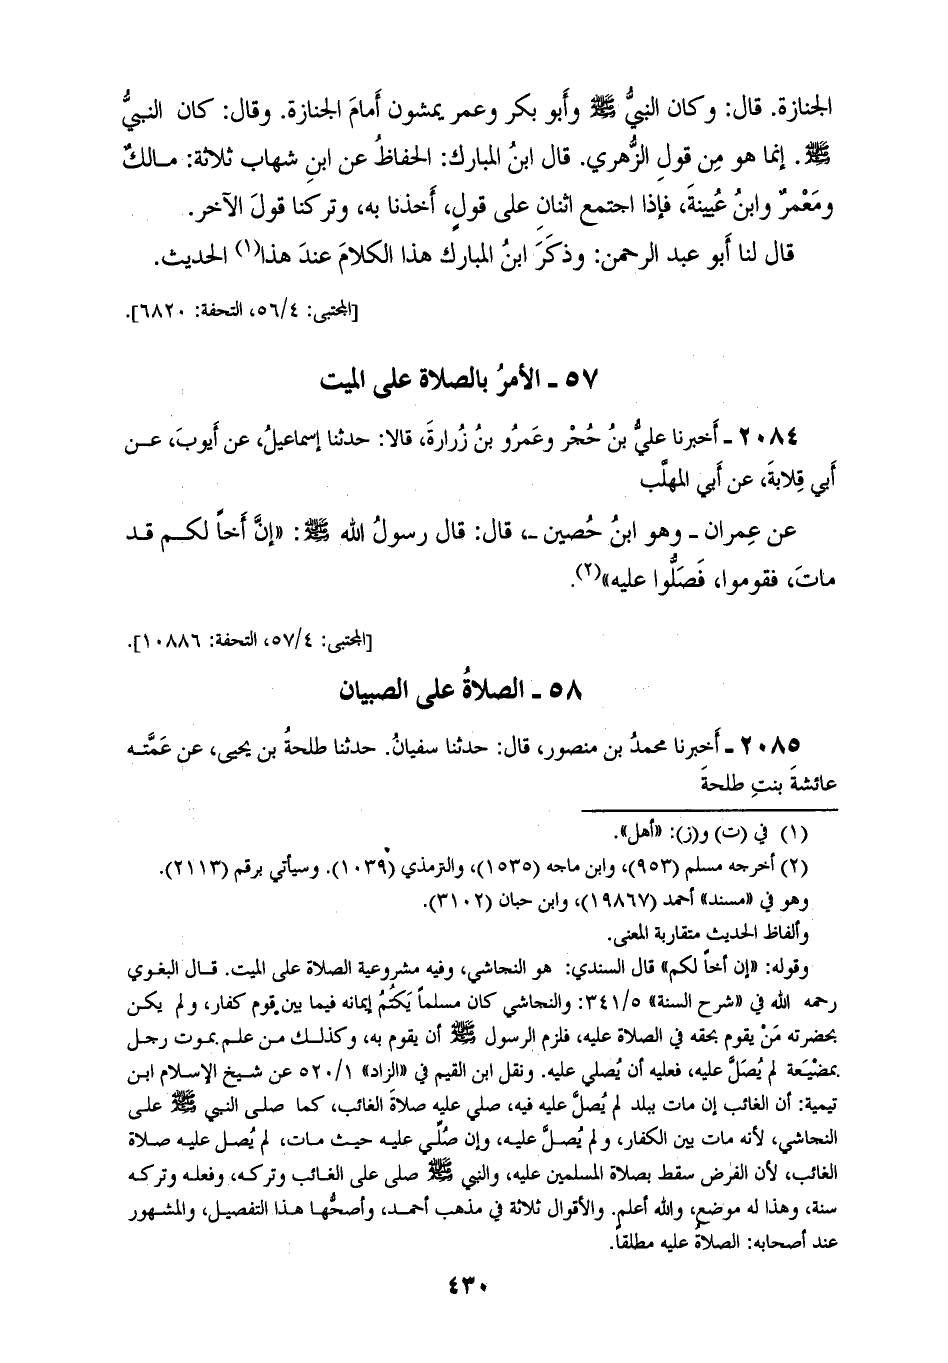 الجنازة. قال: وكان النبيُّ ﷺ وأَبو بكر وعمر يمشون أمامَ الجنازة. وقال: كان النبيُّ
ﷺ. إنما هو مِن قولِ الزُّهري. قال ابنُ المبارك: الحفاظُ عن ابنِ شهاب ثلاثة: مالكٌ
ومَعْمرٌ وابنُ عُيينةَ، فإذا اجتمع اثنانِ على قولٍ، أَخذنا به، وتركنا قولَ الآخر.
قال لنا أَبو عبد الرحمن: وذكَرَ ابنُ المبارك هذا الكلامَ عندَ هذا(١) الحديث.
[المجتبى: ٥٦/٤، التحفة: ٦٨٢٠].
٥٧ ـ الأمرُ بالصلاة على الميت
٢٠٨٤ ـ أَخبرنا عليُّ بنُ حُجْر وعَمرُو بنُ زُرارةَ، قالا: حدثنا إسماعيلُ، عن أيوبَ، عن
أَبي قِلابةَ، عن أَبي المهلَّب
عن عِمران ـ وهو ابنُ حُصين ـ، قال: قال رسولُ الله ﷺ: «إنَّ أَخاً لكم قد
ماتَ، فقوموا، فَصَلُّوا عليه»(٢).
[المجتبى: ٥٧/٤، التحفة: ١٠٨٨٦].
٥٨ ـ الصلاةُ على الصبيان
٢٠٨٥ ـ أَخبرنا محمدُ بن منصور، قال: حدثنا سفيانُ. حدثنا طلحةُ بن يحيى، عن عَمَّته
عائشةَ بنتِ طلحةَ
(١) في (ت) و(ز): «أهل».
(٢) أخرجه مسلم (٩٥٣)، وابن ماجه (١٥٣٥)، والترمذي (١٠٣٩). وسيأتي برقم (٢١١٣).
وهو في «مسند» أحمد (١٩٨٦٧)، وابن حبان (٣١٠٢).
وألفاظ الحديث متقاربة المعنى.
وقوله: «إن أخاً لكم» قال السندي: هو النجاشي، وفيه مشروعية الصلاة على الميت. قال البغوي
رحمه الله في «شرح السنة» ٣٤١/٥: والنجاشي كان مسلماً يَكتُمُ إيمانه فيما بين قوم كفار، ولم يكن
بحضرته مَنْ يقوم بحقه في الصلاة عليه، فلزم الرسول ﷺ أن يقوم به، وكذلك من علم بموت رجل
بمضْيَعة لم يُصَلَّ عليه، فعليه أن يُصلي عليه. ونقل ابن القيم في «الزاد» ٥٢٠/١ عن شيخ الإسلام ابن
تيمية: أن الغائب إن مات ببلد لم يُصلَّ عليه فيه، صلي عليه صلاةَ الغائب، كما صلى النبي ﷺ على
النجاشي، لأنه مات بين الكفار، ولم يُصلَّ عليه، وإن صُلِّي عليه حيث مات، لم يُصل عليه صلاة
الغائب، لأن الفرض سقط بصلاة المسلمين عليه، والنبي ﷺ صلى على الغائب وتركه، وفعله وتركه
سنة، وهذا له موضع، والله أعلم. والأقوال ثلاثة في مذهب أحمد، وأصحُّها هذا التفصيل، والمشهور
عند أصحابه: الصلاةُ عليه مطلقاً.
٤٣٠